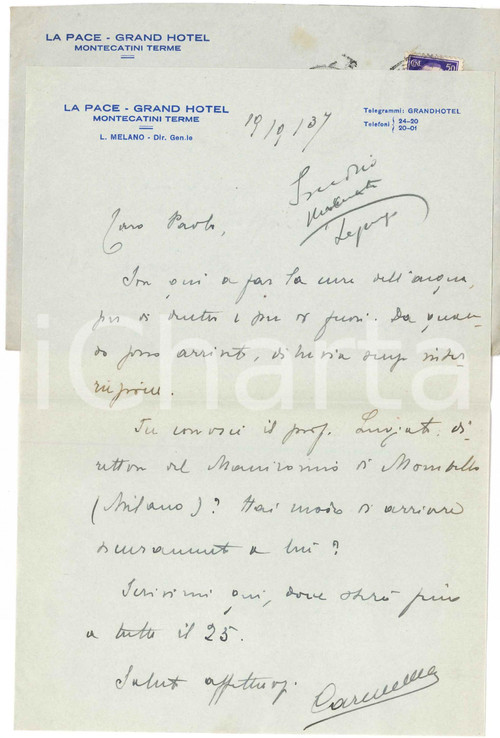 LA PACE - GRAND HOTEL
MONTECATINI TERME
50
LA PACE - GRAND HOTEL
MONTECATINI TERME
L. MELANO - Dir. Gen.le
Telegrammi: GRANDHOTEL
Telefoni 24-20
20-01
19/9/37
Caro Paolo,
Son qui a far la cura dell'acqua,
per di dentro e per di fuori. Da quan-
do sono arrivato, diluvia senza inter-
ruzione.
Tu conosci il prof. Lugiato di-
rettore del Manicomio di Mombello
(Milano)? Hai modo di arrivare
sicuramente a lui?
Scrivimi qui, dove starò fino
a tutto il 25.
Saluti affettuosi
iCharta